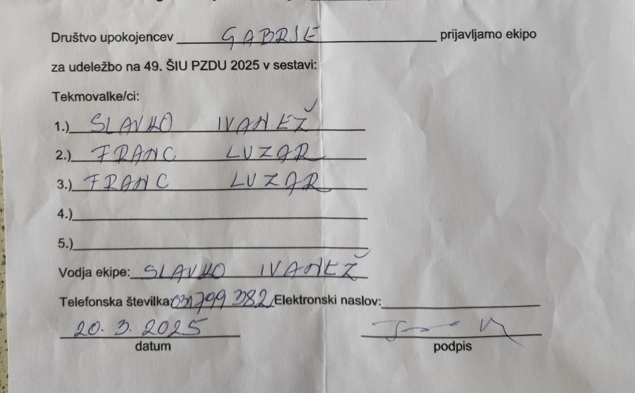 Društvo upokojencev GABRJE prijavljamo ekipo
za udeležbo na 49. ŠIU PZDU 2025 v sestavi:
Tekmovalke/ci:
1.) SLAVKO IVANEŽ
2.) FRANC LUZAR
3.) FRANC LUZAR
4.)
5.)
Vodja ekipe: SLAVKO IVANEŽ
Telefonska številka: 031799 382 Elektronski naslov:
20. 3. 2025
datum podpis